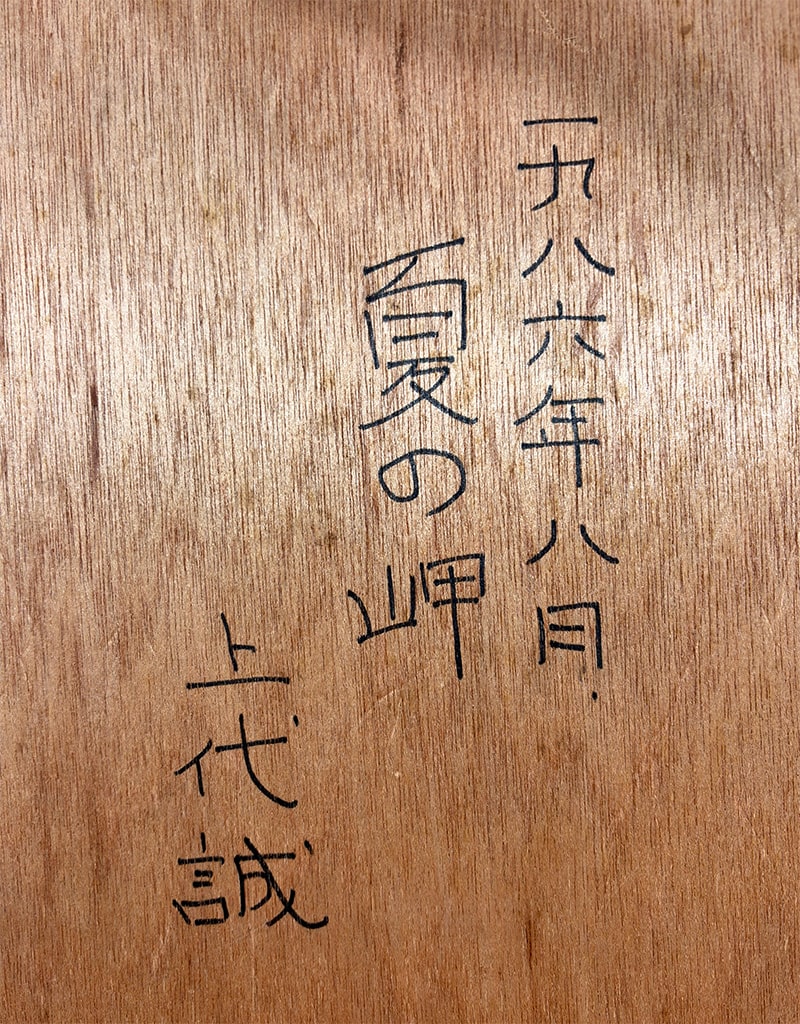 一九八六年八月.
夏の岬
上代誠